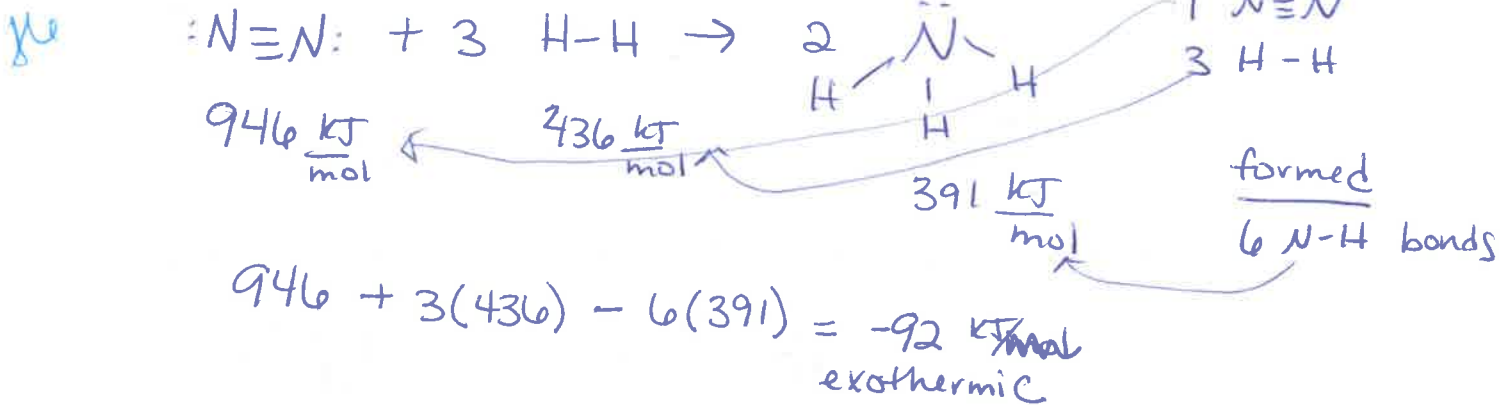 :N≡N: + 3 H-H → 2 N̈ H H H
1 N≡N
3 H-H
946 kJ/mol
436 kJ/mol
391 kJ/mol
formed
6 N-H bonds
946 + 3(436) - 6(391) = -92 kJ
exothermic